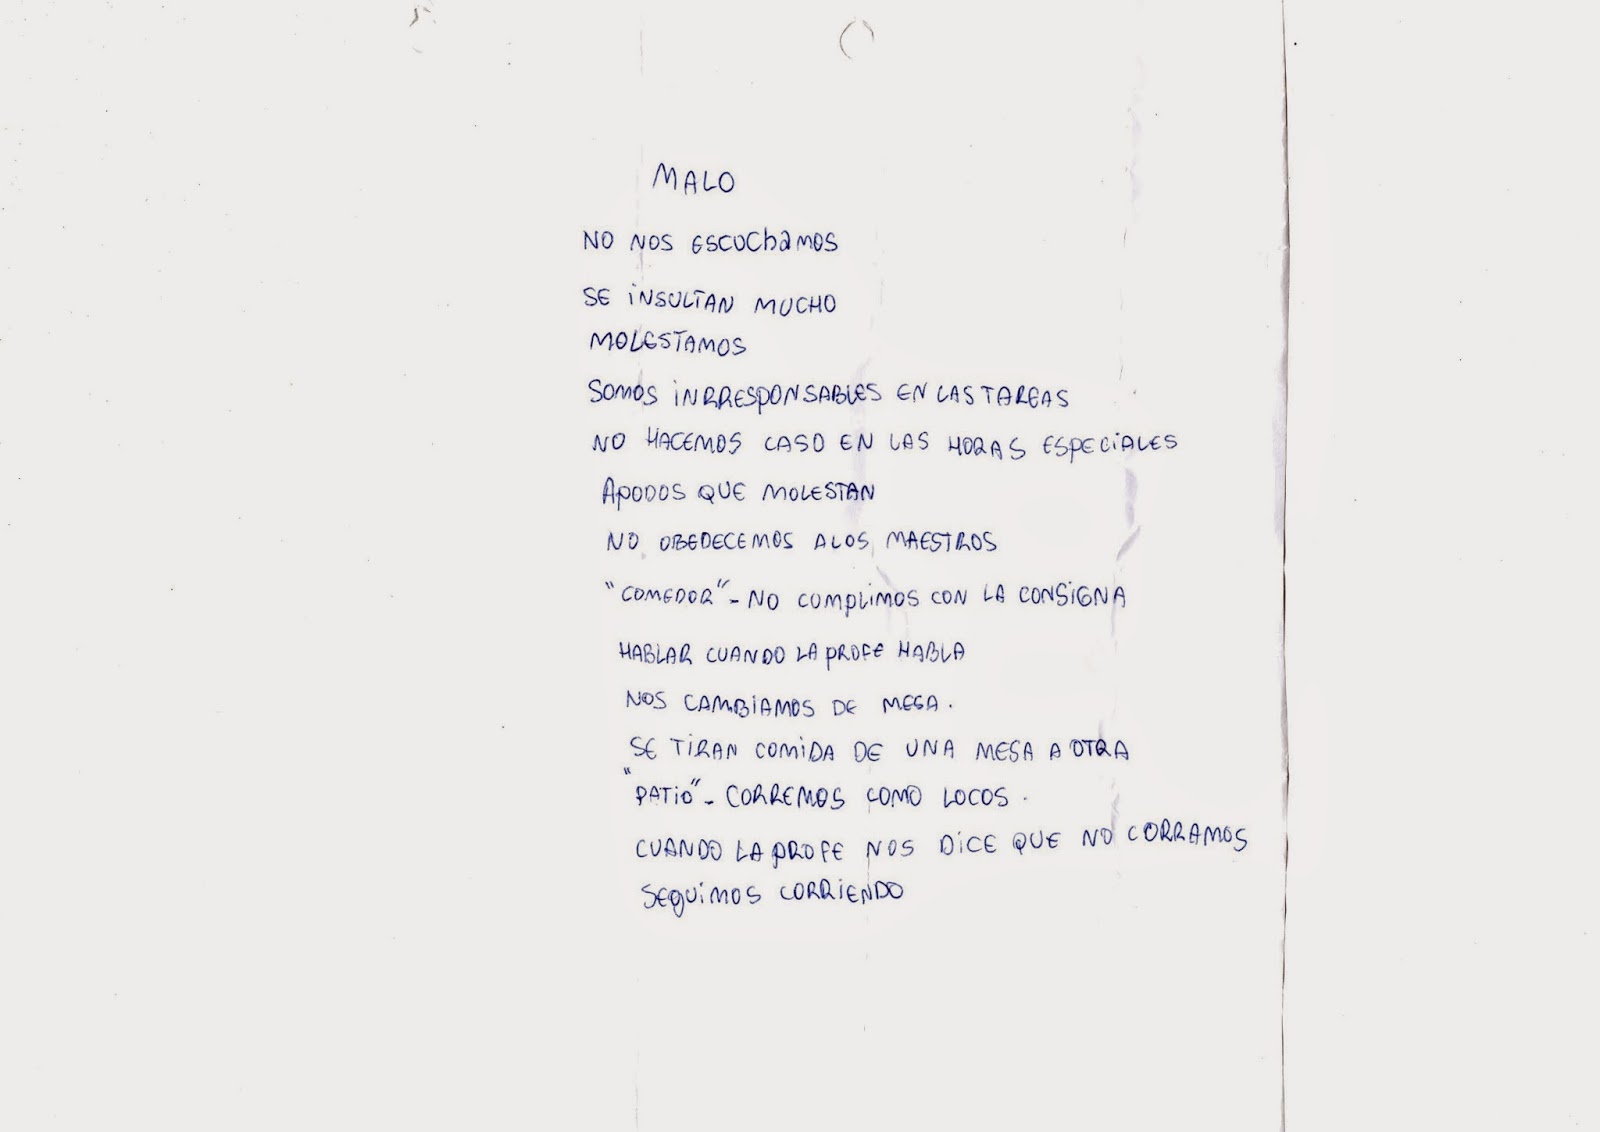 MALO
NO NOS ESCUCHAMOS
SE INSULTAN MUCHO
MOLESTAMOS
SOMOS INRRESPONSABLES EN LAS TAREAS
NO HACEMOS CASO EN LAS HORAS ESPECIALES
APODOS QUE MOLESTAN
NO OBEDECEMOS A LOS MAESTROS
"COMEDOR" - NO CUMPLIMOS CON LA CONSIGNA
HABLAR CUANDO LA PROFE HABLA
NOS CAMBIAMOS DE MESA.
SE TIRAN COMIDA DE UNA MESA A OTRA
"PATIO" - CORREMOS COMO LOCOS.
CUANDO LA PROFE NOS DICE QUE NO CORRAMOS
SEGUIMOS CORRIENDO